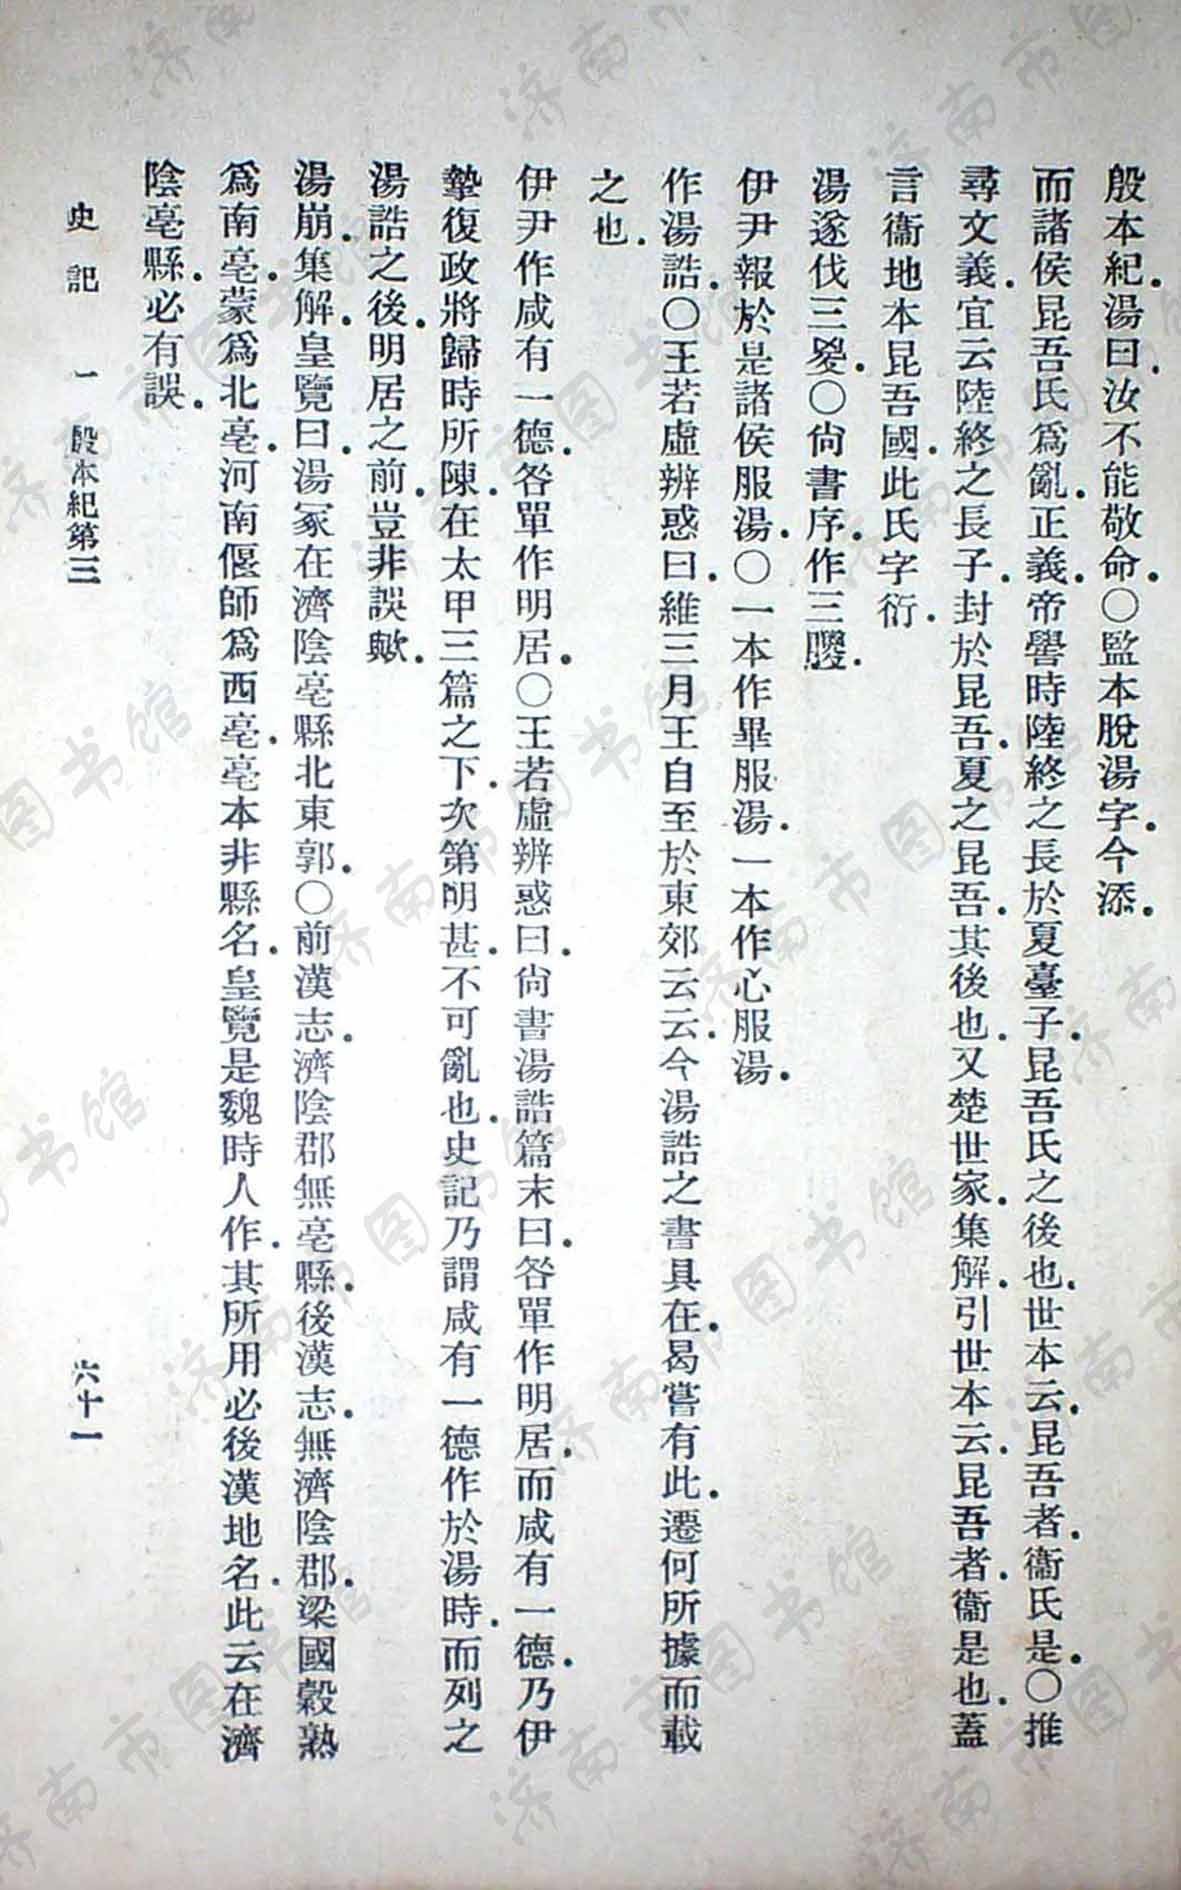 殷本紀湯曰汝不能敬命○監本脫湯字今添
而諸侯昆吾氏爲亂正義帝嚳時陸終之長於夏臺子昆吾氏之後也世本云昆吾者衞氏是○推
尋文義宜云陸終之長子封於昆吾夏之昆吾其後也又楚世家集解引世本云昆吾者衞是也蓋
言衞地本昆吾國此氏字衍
湯遂伐三㚇○尙書序作三朡
伊尹報於是諸侯服湯○一本作畢服湯一本作心服湯
作湯誥○王若虛辨惑曰維三月王自至於東郊云云今湯誥之書具在曷嘗有此遷何所據而載
之也
伊尹作咸有一德咎單作明居○王若虛辨惑曰尙書湯誥篇末曰咎單作明居而咸有一德乃伊
摯復政將歸時所陳在太甲三篇之下次第明甚不可亂也史記乃謂咸有一德作於湯時而列之
湯誥之後明居之前豈非誤歟
湯崩集解皇覽曰湯冢在濟陰亳縣北東郭○前漢志濟陰郡無亳縣後漢志無濟陰郡梁國穀熟
爲南亳蒙爲北亳河南偃師爲西亳亳本非縣名皇覽是魏時人作其所用必後漢地名此云在濟
陰亳縣必有誤
史記 一 殷本紀第三 六十一
济南市图书馆